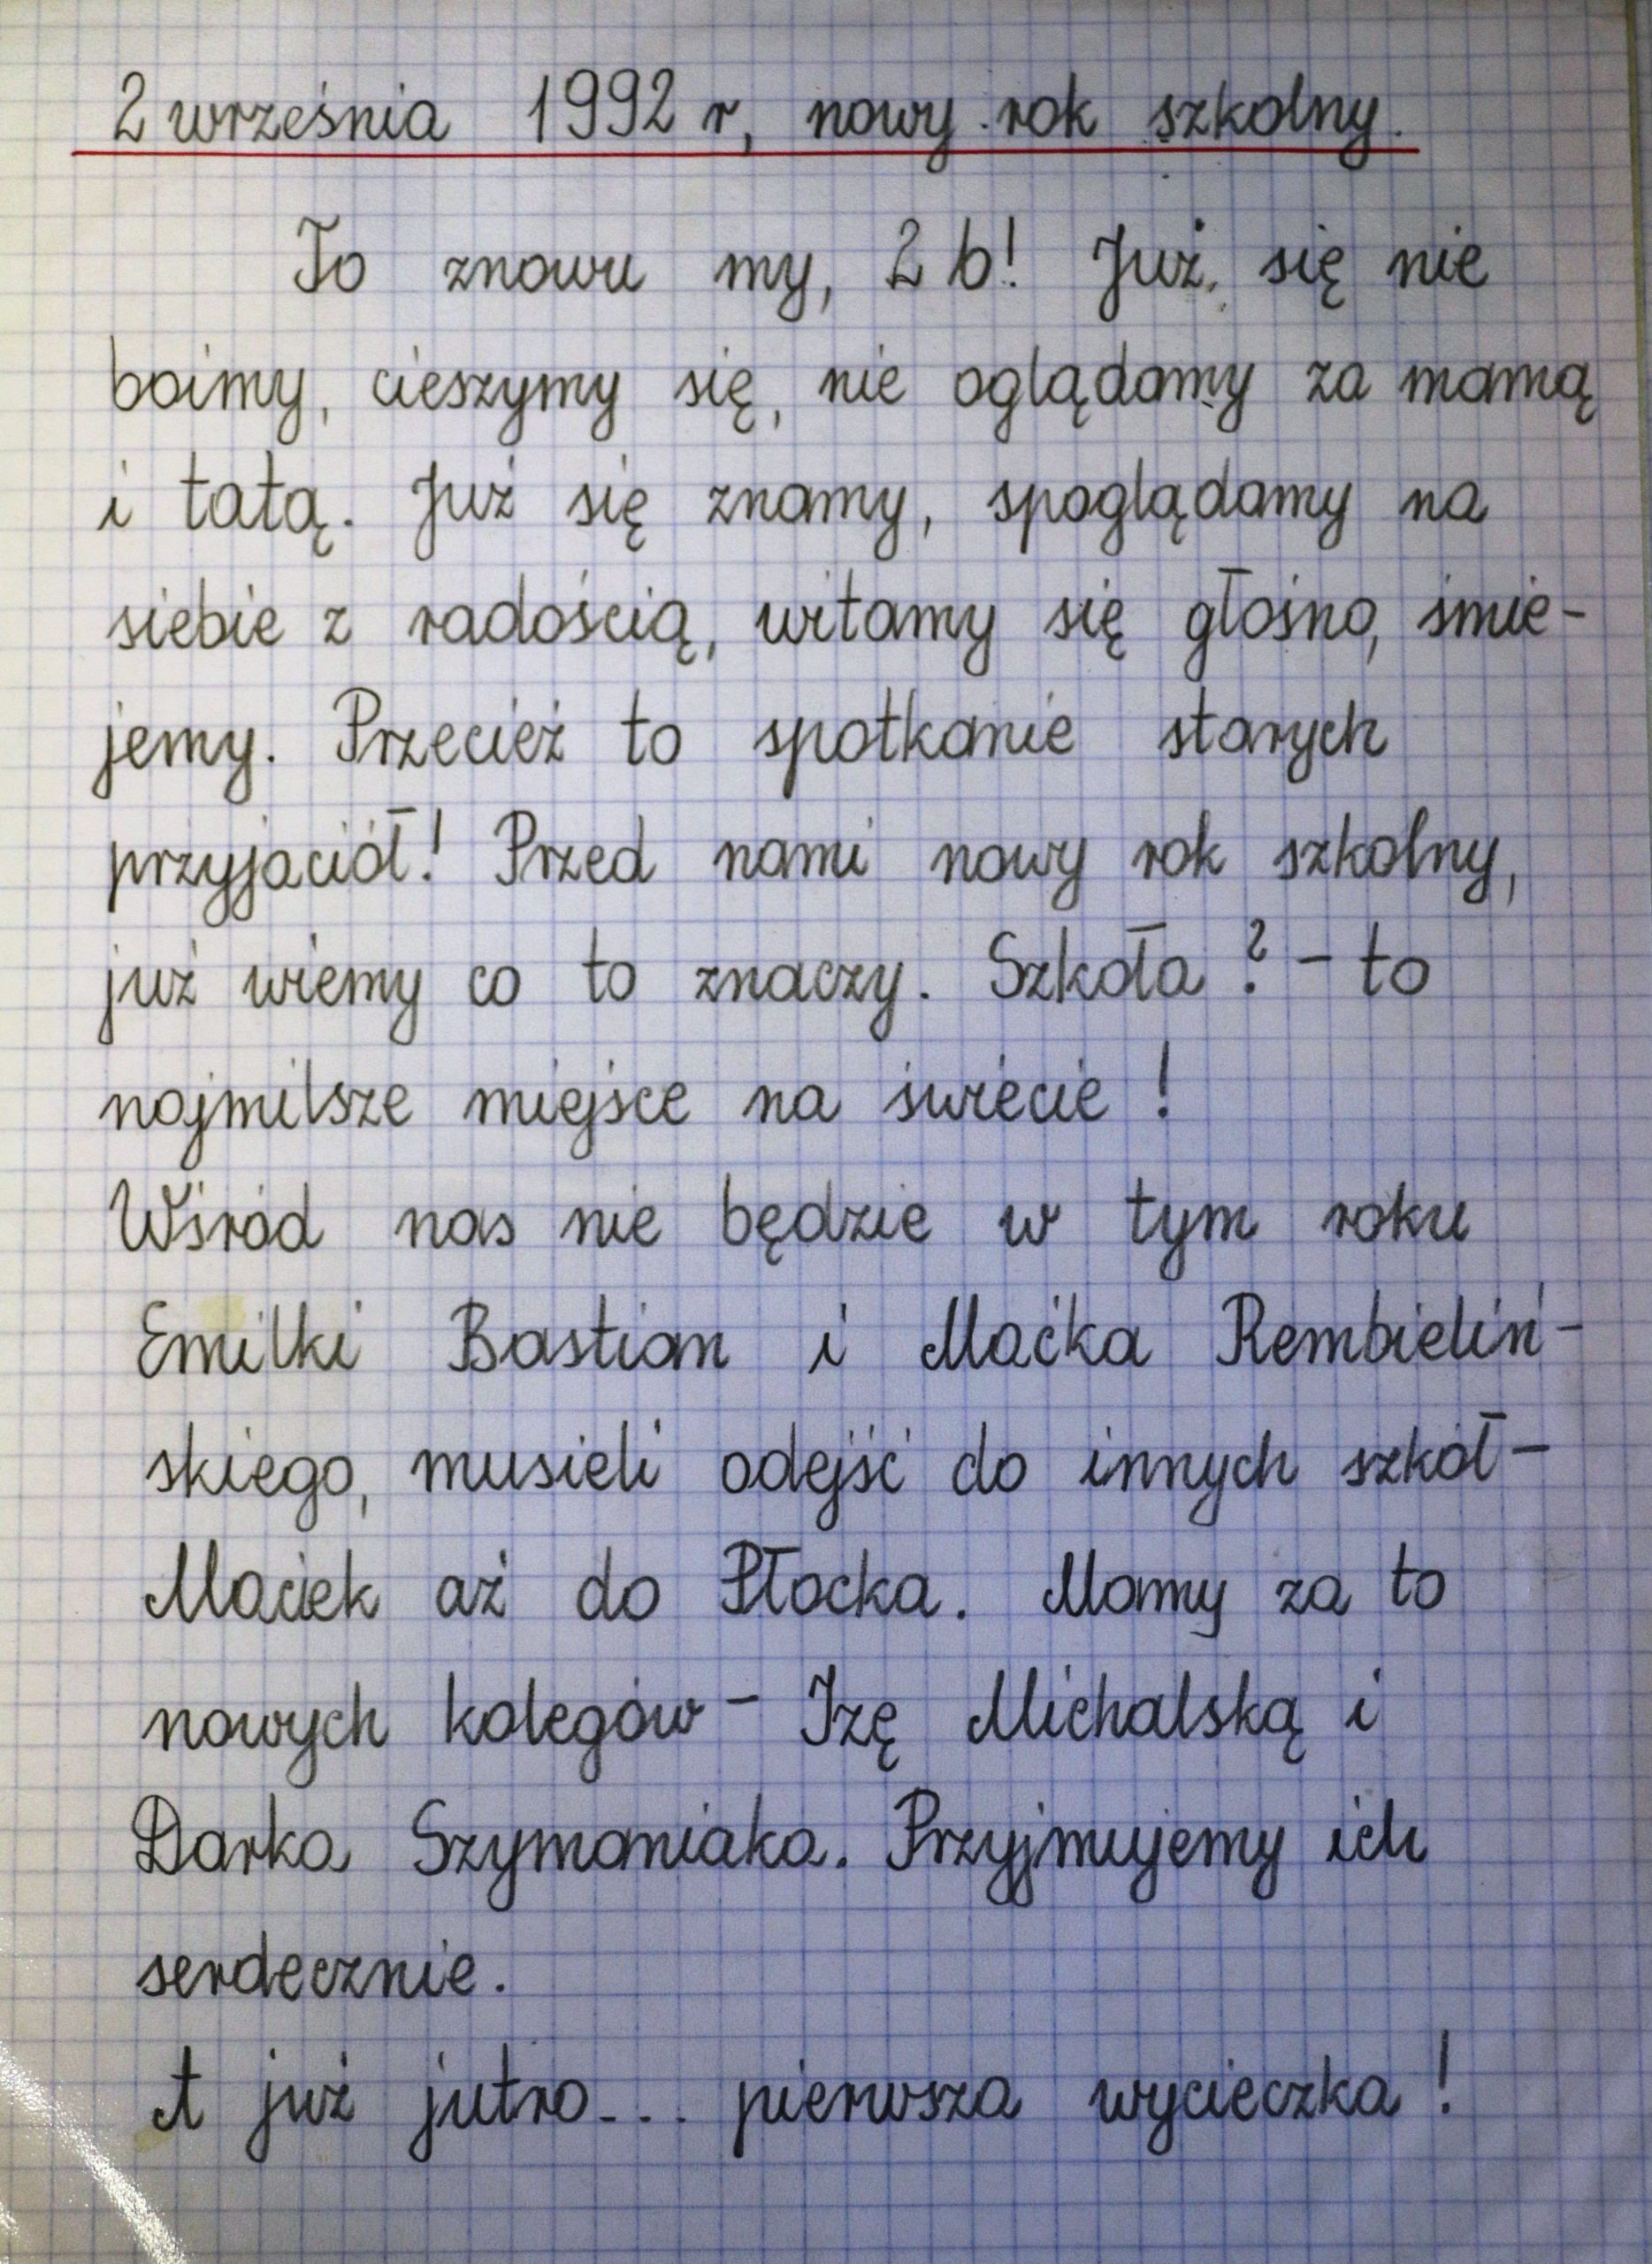 2 września 1992 r, nowy rok szkolny.
To znowu my, 2 b! Już się nie
boimy, cieszymy się, nie oglądamy za mamą
i tatą. Już się znamy, spoglądamy na
siebie z radością, witamy się głośno, śmie-
jemy. Przecież to spotkanie starych
przyjaciół! Przed nami nowy rok szkolny,
już wiemy co to znaczy. Szkoła? - to
najmilsze miejsce na świecie!
Wśród nas nie będzie w tym roku
Emilki Bastian i Maćka Rembieliń-
skiego, musieli odejść do innych szkół -
Maciek aż do Płocka. Mamy za to
nowych kolegów - Izę Michalską i
Darka Szymaniaka. Przyjmujemy ich
serdecznie.
A już jutro... pierwsza wycieczka!